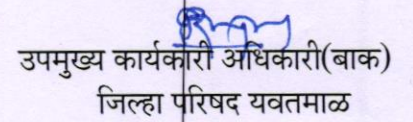 उपमुख्य कार्यकारी अधिकारी(बाक)
जिल्हा परिषद यवतमाळ